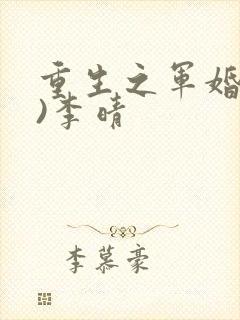 重生之军婚
)李晴
李慕豪